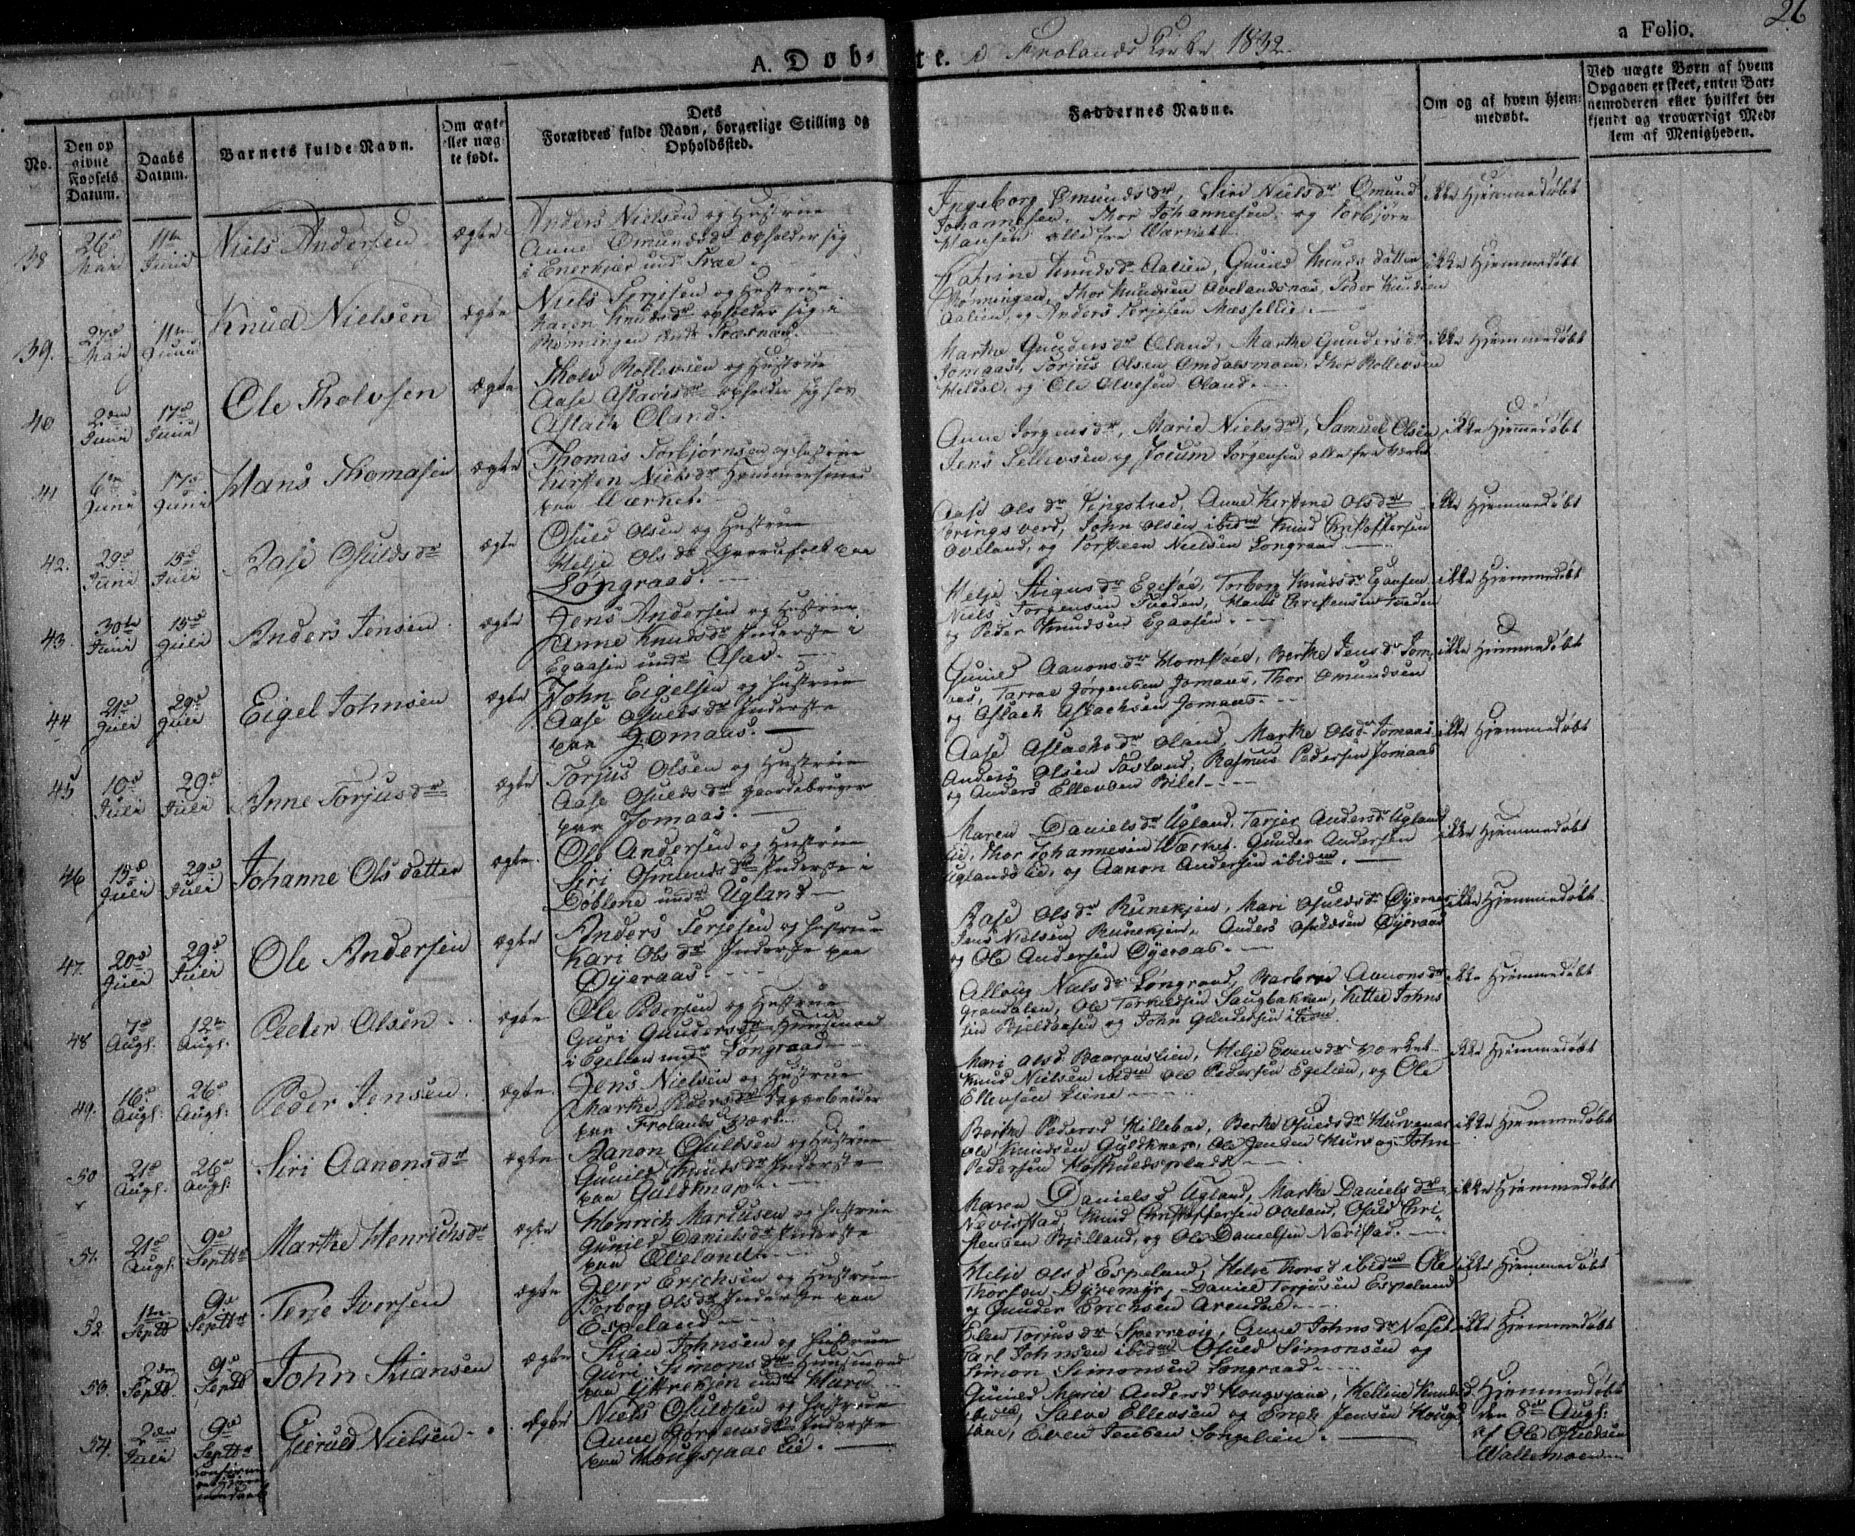 26
a Folio.
A. Døb- te. i Frolands Kirke 1832.
No.
Den op
givne
Fødsels
Datum.
Daabs
Datum.
Barnets fulde Navn.
Om ægte
eller uæg
te født.
Dets
Forældres fulde Navn, borgerlige Stilling og
Opholdssted.
Faddernes Navne.
Om og af hvem hjem-
medøbt.
Ved uægte Børn af hvem
Opgaven er skeet, enten Bar-
nemoderen eller hvilket be-
kjendt og troværdigt Med-
lem af Menigheden.
38 26de Mai 11te Junii Niels Andersen ægte
Anders Nielsen og Hustrue
Anne Omundsdr opholder sig
i Enerkjær undr Træe
Ingeborg Omundsdr, Siri Nielsdr Omund
Johannesen, Thor Johannesen og Torbjørn
Hansen alle fra Værket
ikke Hjemmedøbt
39. 27de Mai 11te Junii Knud Nielsen ægte
Niels Terjesen og Hustrue
Karen Knudsdr opholder sig i
Rønningen
Katrine Knudsdr Aalien, Gunild Knuds datter
Rønningen, Thor Knudsen Ovelandsnæs, Peder Knudsen
Aalien, og Anders Terjesen Messellie.
ikke Hjemmedøbt
40 2den Junii 17de Junii Ole Tholvsen ægte
Tholv Rollevsen og Hustrue
Aase Aslaksdr opholder sig hos
Aslak Oland.
Marthe Gundersdr Oland, Marthe Gundersdr
Jomaas, Torjus Olsen Omdalsmoen, Thor Rollevsen
Heldal, og Ole Olvesen Oland.
ikke Hjemmedøbt
41 6te Junii 17de Junii Hans Thomasen ægte
Thomas Torbjørnsen og Hustrue
Kirsten Nielsdr Hammersmed
paa Værket.
Anne Jørgensdr, Marie Nielsdr, Samuel Olsen
Jens Tellevsen og Jocum Jørgensen alle fra Værket
ikke Hjemmedøbt
42. 29de Junii 15de Juli Aase Osuldsdr ægte
Osuld Olsen og Hustrue
Helje Olsdr Gaardefolk paa
Løngraae.
Aase Olsdr Tingstved, Anne Kirstine Olsdr
Bringsverd, John Olsen ibidem Knud Christoffersen
Oveland, og Torsteen Nielsen Longraae
ikke Hjemmedøbt
43. 30te Junii 15de Juli Anders Jensen. ægte
Jens Andersen og Hustrue
Anne Knudsdr Inderste i
Egaasen undr Osæe.
Helje Stiansdr Egeskoe, Torborg Knudsdr Egaasen
Niels Jørgensen Tveden, Hans Christensen Tveden
og Peder Knudsen Egaasen.
ikke Hjemmedøbt
44 21de Juli 29de Juli Eigel Johnsen ægte
John Eigelsen og Hustrue
Aase Osuldsdr Inderste
paa Jomaas.
Gunild Aanonsdr Homskoet, Berthe Jensdr Jom-
aas, Tarral Jørgensen Jomaas, Thor Omundsen
og Aslach Aslachsen Jomaas.
ikke Hjemmedøbt
45 10de Juli 29de Juli Anne Torjusdr ægte
Torjus Olsen og Hustrue
Aase Osuldsdr Gaardebruger
paa Jomaas.
Aase Aslachsdr Oland, Marthe Olsdr Jomaas
Anders Olsen Tovland, Rasmus Pedersen Jomaas
og Anders Ellevsen Bilet.
ikke Hjemmedøbt
46 15de Juli 29de Juli Johanne Olsdatter ægte.
Ole Andersen og Hustrue
Siri Osmundsdr Inderste i
Døblene undr Ugland
Maren Danielsdr Ugland, Tarjer Andersdr Uglands
lie, Thor Johannesen Værket. Gunder Andersen
Uglandslie, og Aanon Andersen ibidem.
ikke Hjemmedøbt
47. 20de Juli 29de Juli Ole Andersen ægte
Anders Terjesen og Hustrue
Kari Olsdr Inderste paa
Øyeraas.
Aase Olsdr Runekjen, Mari Osuldsdr Øyeraas
Jens Nielsen Runekjen. Anders Osuldsen Øyeraas
og Ole Andersen Øyeraas.
ikke Hjemmedøbt
48 7de Augs. 12te Augs. Peder Olsen ægte
Ole Pedersen og Hustrue
Guri Gundersdr Huusmand
i Egelien undr Longraae
Allvig Nielsdr Longraae, Barbroe Aanonsdr
Grandalen, Ole Tarkeldsen Saugbakken, Kittel Johns
sen Bjeldaasen og John Gundersen ibidem
ikke Hjemmedøbt
49. 16de Augs. 26de Augs: Peder Jensen. ægte.
Jens Nielsen og Hustrue
Marthe Pedersdr Dagarbeider
paa Frolands Værk.
Mari Olsd Baaraaslien, Helje Evensdr Værket
Knud Nielsen ibidem Ole Pedersen Egelien, og Ole
Ellevsen Liene
ikke Hjemmedøbt
50 21de Augs. 26de Augs: Siri Aanonsdr ægte
Aanon Osuldsen og Hustrue
Gunild Knudsdr Inderste
paa Guldknap.
Berthe Pedersd Hillebæe, Berthe Osuldsdr Hurvenæs
Ole Knudsen Guldknap, Ole Jensen Hurv og John
Pedersen
ikke Hjemmedøbt
51. 21de Augs. 9de Septbr Marthe Henrichsdr ægte
Henrich Martinsen og Hustrue
Gunild Danielsdr Inderste
paa Oveland.
Maren Danielsd Ugland, Marthe Danielsdr
Neviestad, Knud Christoffersen Oveland, Osuld Chri-
stensen Bjelland, og Ole Danielsen Næristad.
ikke Hjemmedøbt
52 1ste Septb 9de Septbr Terje Iversen ægte
Iver Erichsen og Hustrue
Torborg Olsdr Inderste paa
Espeland
Helje Olsd Espeland, Helve Thorsd ibidem Ole
Thorsen Dyremyr, Daniel Torjusen Espeland
og Gunder Erichsen Arendal
ikke Hjemmedøbt
53. 2den Septb 9de Septb John Stiansen ægte
Stian Johnsen og Hustrue
Guri Simonsdr Huusmand
paa Ytterekjen undr Hurv
Ellen Torjusdr Sperrevig, Anne Johnsdr Næset
Carl Johnsen ibidem Osuld Simonsen og
Simon Simonsen Longraae
ikke Hjemmedøbt
54. 2den Juli 9de Septbr Gjeruld Nielsen ægte
Niels Osuldsen og Hustrue
Anne Inderste
paa Hougsjaae Lie.
Gunild Marie Andersd Hougsjaae, Kelline Knudsd
ibidem, Salve Ellevsen og Erich Jensen Hougs
jaae, Even Jensen Songelien.
Hjemmedøbt
den 8de Augs:
af Ole Osuldsen
Wallemoen